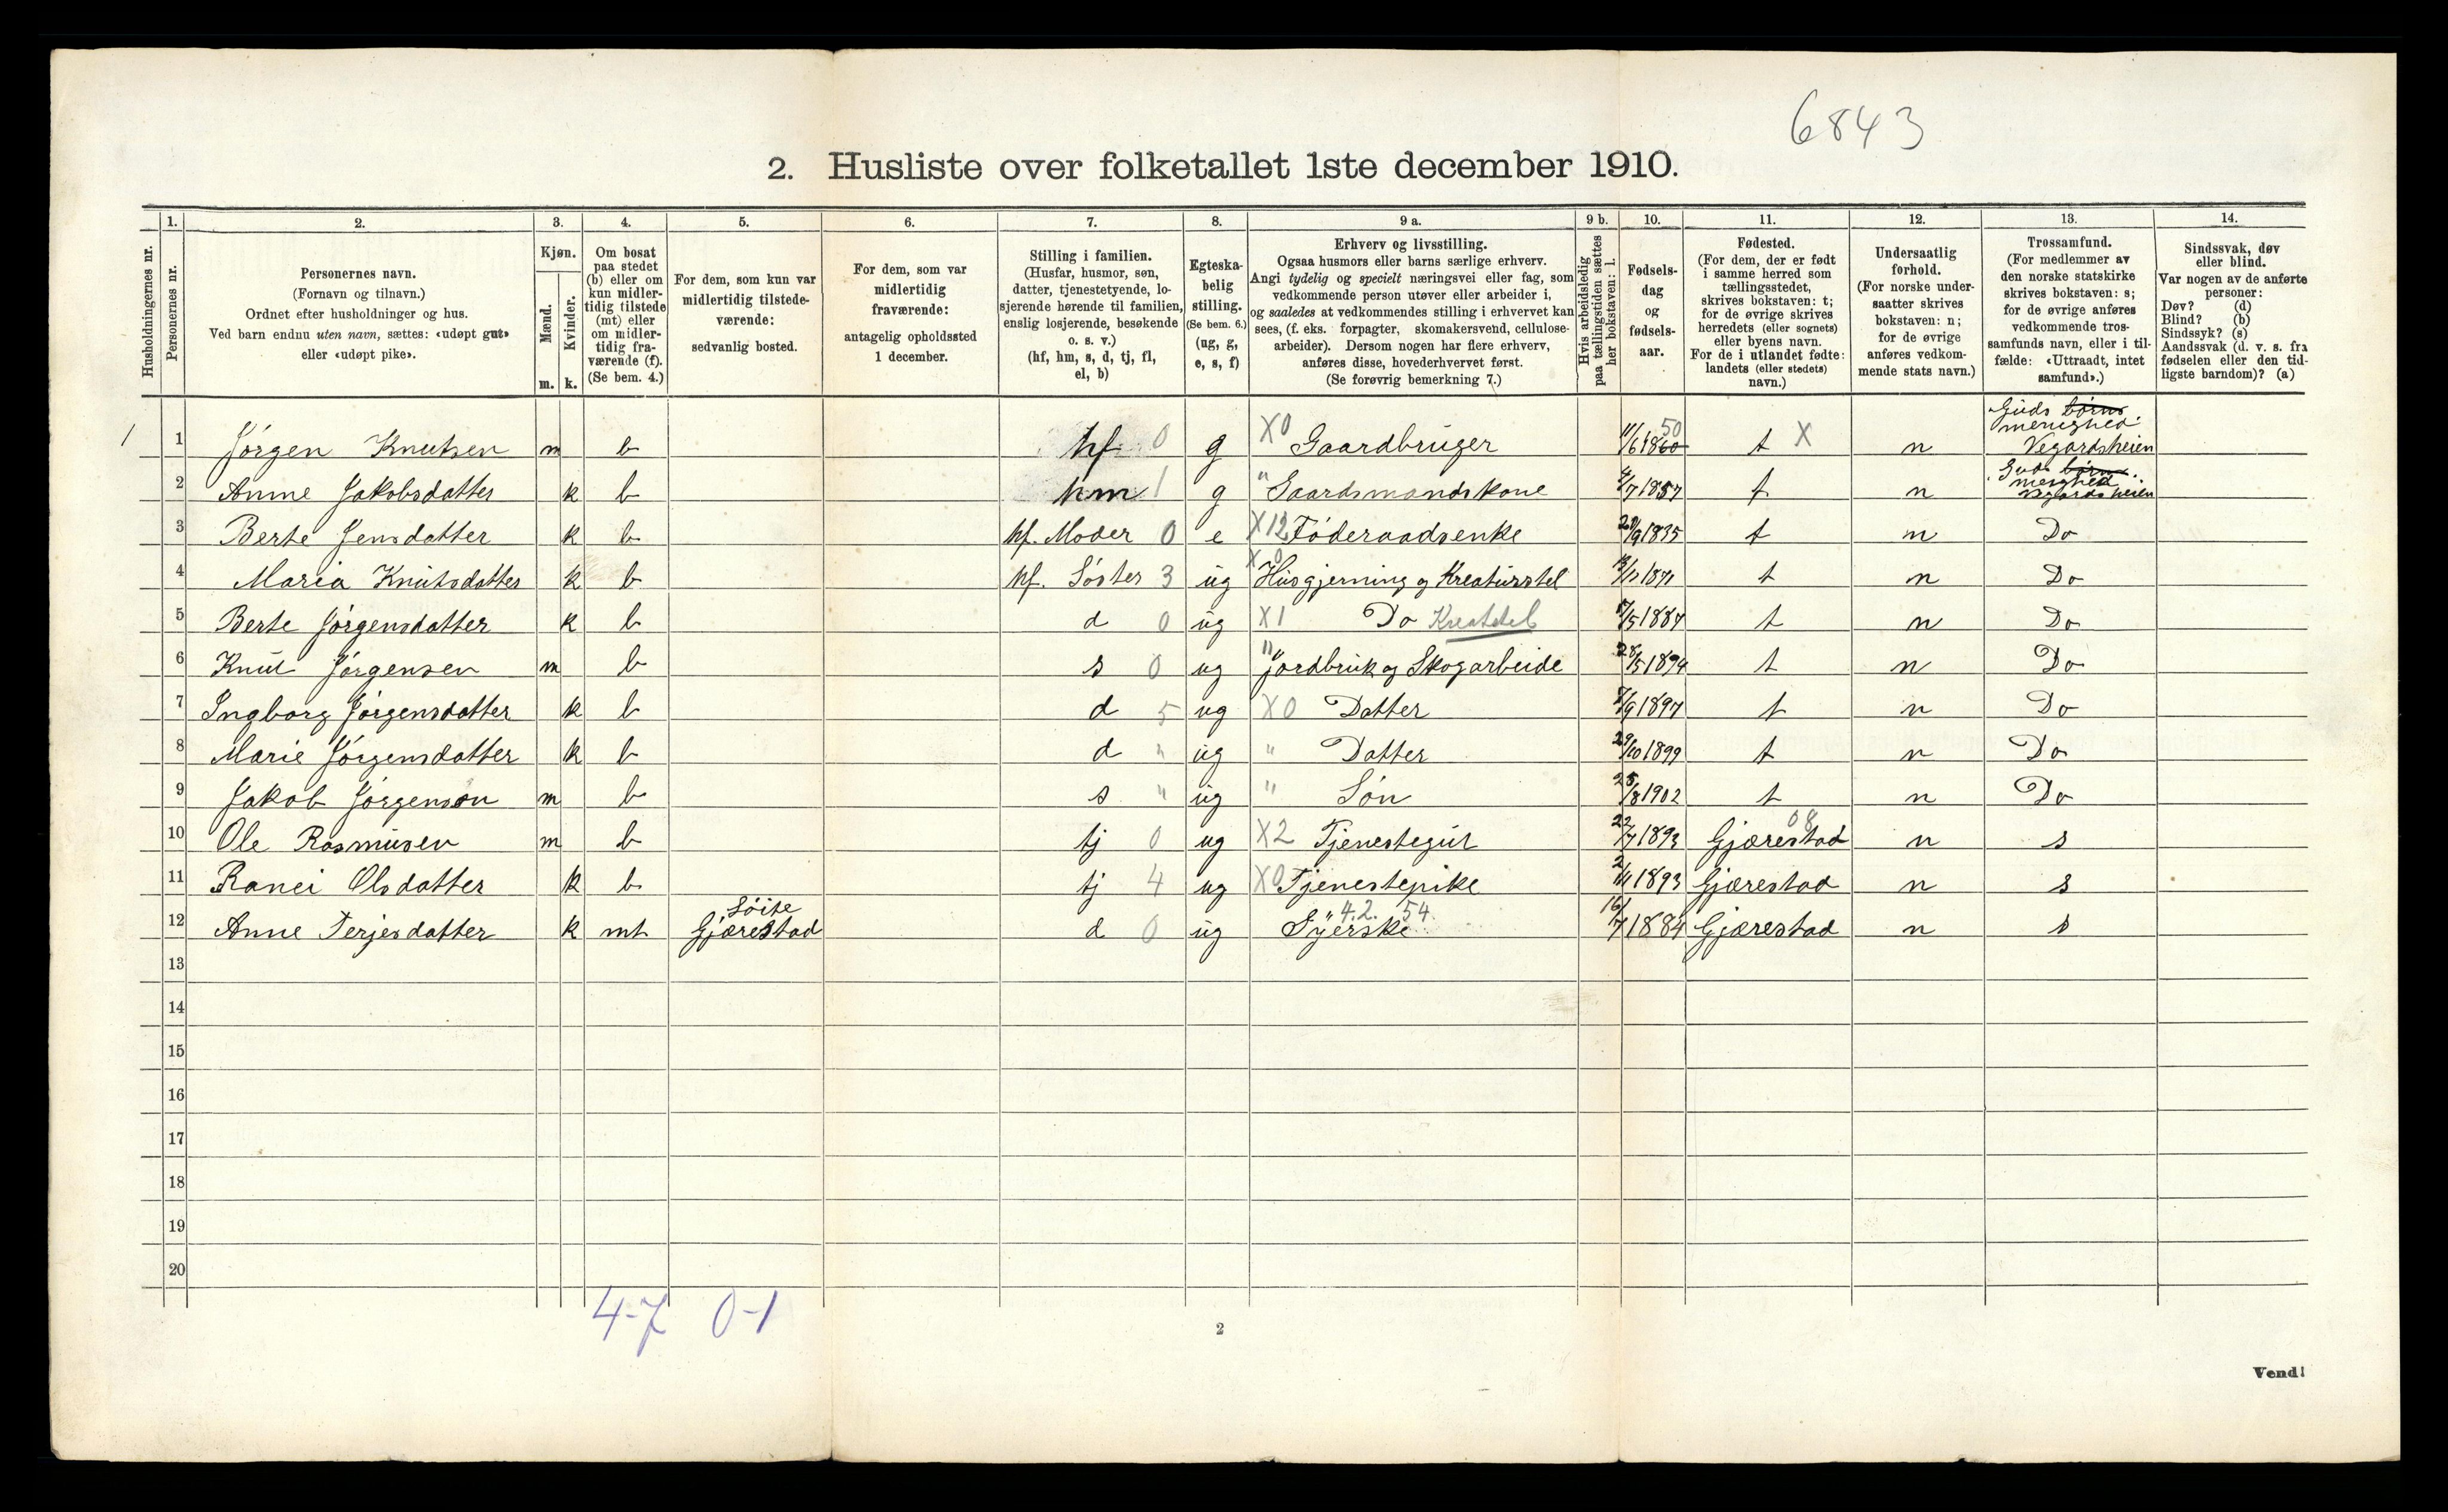 6843
2. Husliste over folketallet 1ste december 1910.
Husholdningernes nr.
1.
Personernes nr.
2.
Personernes navn.
(Fornavn og tilnavn.)
Ordnet efter husholdninger og hus.
Ved barn endnu uten navn, sættes: «udøpt gut»
eller «udøpt pike».
3.
Kjøn.
Mænd.
Kvinder.
m. k.
4.
Om bosat
paa stedet
(b) eller om
kun midler-
tidig tilstede
(mt) eller
om midler-
tidig fra-
værende (f).
(Se bem. 4.)
5.
For dem, som kun var
midlertidig tilstede-
værende:
sedvanlig bosted.
6.
For dem, som var
midlertidig
fraværende:
antagelig opholdssted
1 december.
7.
Stilling i familien.
(Husfar, husmor, søn,
datter, tjenestetyende, lo-
sjerende hørende til familien,
enslig losjerende, besøkende
o. s. v.)
(hf, hm, s, d, tj, fl,
el, b)
8.
Egteska-
belig
stilling.
(Se bem. 6.)
(ug, g,
e, s, f)
9 a.
Erhverv og livsstilling.
Ogsaa husmors eller barns særlige erhverv.
Angi tydelig og specielt næringsvei eller fag, som
vedkommende person utøver eller arbeider i,
og saaledes at vedkommendes stilling i erhvervet kan
sees, (f. eks. forpagter, skomakersvend, cellulose-
arbeider). Dersom nogen har flere erhverv,
anføres disse, hovederhvervet først.
(Se forøvrig bemerkning 7.)
9 b.
Hvis arbeidsledig
paa tællingstiden sættes
her bokstaven: l.
10.
Fødsels-
dag
og
fødsels-
aar.
11.
Fødested.
(For dem, der er født
i samme herred som
tællingsstedet,
skrives bokstaven: t;
for de øvrige skrives
herredets (eller sognets)
eller byens navn.
For de i utlandet fødte:
landets (eller stedets)
navn.)
12.
Undersaatlig
forhold.
(For norske under-
saatter skrives
bokstaven: n;
for de øvrige
anføres vedkom-
mende stats navn.)
13.
Trossamfund.
(For medlemmer av
den norske statskirke
skrives bokstaven: s;
for de øvrige anføres
vedkommende tros-
samfunds navn, eller i til-
fælde: «Uttraadt, intet
samfund».)
14.
Sindssvak, døv
eller blind.
Var nogen av de anførte
personer:
Døv? (d)
Blind? (b)
Sindssyk? (s)
Aandssvak (d. v. s. fra
fødselen eller den tid-
ligste barndom)? (a)
1 1 Jørgen Knutsen m b hf 0 g X0 Gaardbruger 11/6 1860 50 t X n Guds børns menighed Vegardsheien
2 Anne Jakobsdatter k b hm 1 g " Gaardsmandskone 4/7 1857 t n Guds børns menighed Vegardsheien
3 Berte Jensdatter k b hf. Moder 0 e X12 Føderaadsenke /9 1835 t n Do
4 Maria Knutsdatter k b hf. Søster 3 ug X0 Husgjerning og Kreaturstel 1871 t n Do
5 Berte Jørgensdatter k b d 0 ug X1 Do Kreatstel /5 1887 t n Do
6 Knut Jørgensen m b s 0 ug " jordbruk og Skogarbeide 28/5 1894 t n Do
7 Ingborg Jørgensdatter k b d 5 ug X0 Datter /9 1897 t n Do
8 Marie Jørgensdatter k b d " ug " Datter 29/10 1899 t n Do
9 Jakob Jørgensøn m b s " ug " Søn 25/8 1902 t n Do
10 Ole Rasmusen m b tj 0 ug X2 Tjenestegut 22/7 1893 Gjærestad 08 n s
11 Ranei Olsdatter k b tj 4 ug X0 Tjenestepike 2/11 1893 Gjærestad n s
12 Anne Terjesdatter k mt Søite Gjærestad d 0 ug " 4.2. 54. Syerske 16/7 1884 Gjærestad n s
13
14
15
16
17
18
19
20
4-7 0-1
2
Vend!